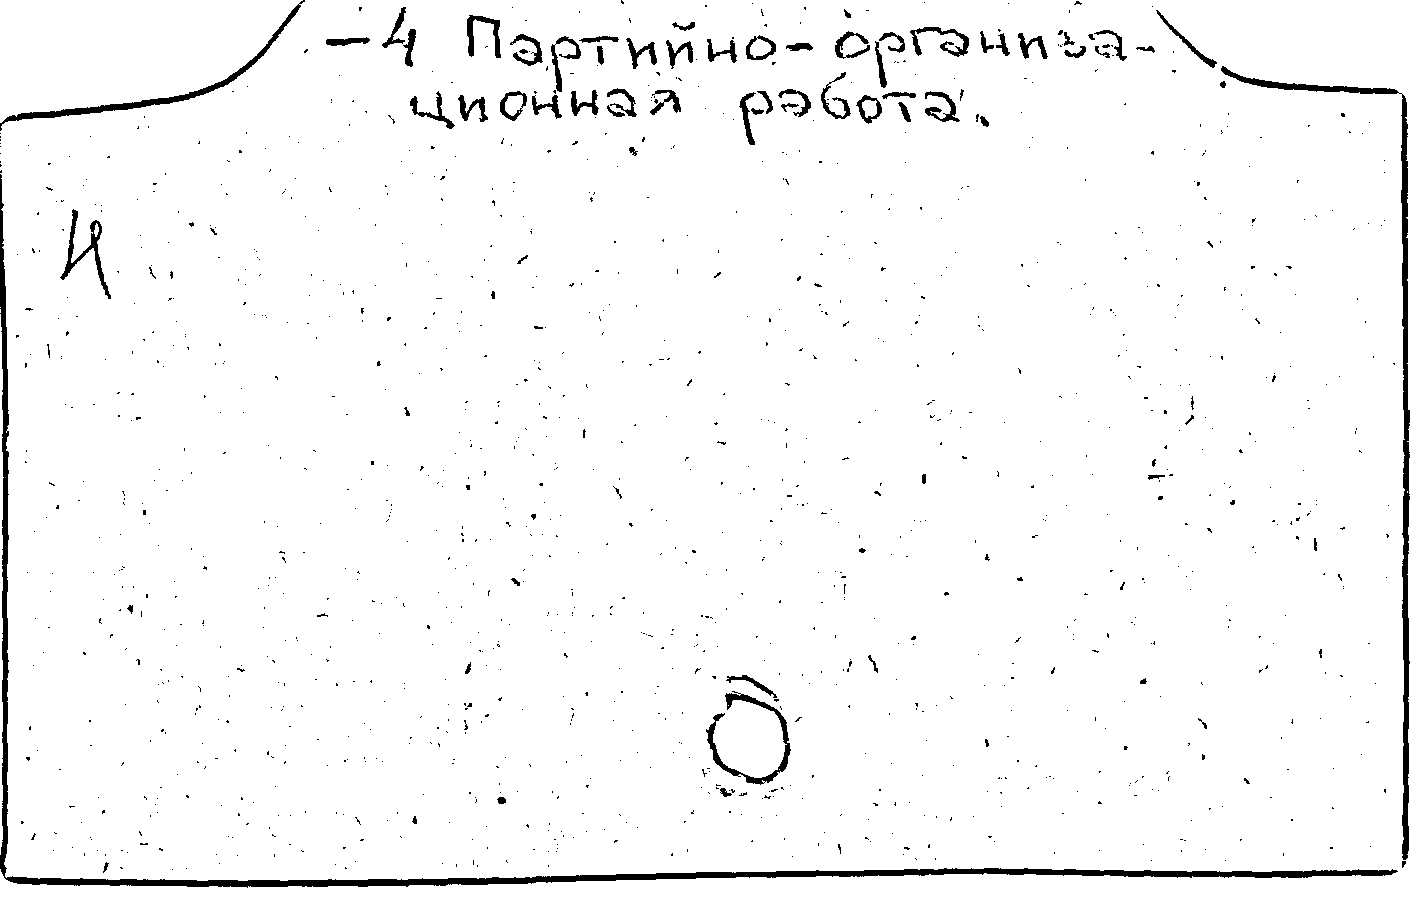 -4 Партийно-организа-
ционная работа.
И